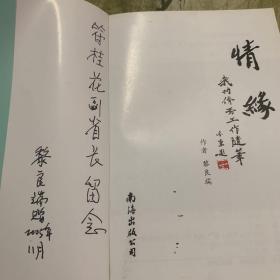 符桂花副省长留念
黎良端赠
2005年
11月
情缘
我的侨务工作随笔
作者 黎良端
南海出版公司